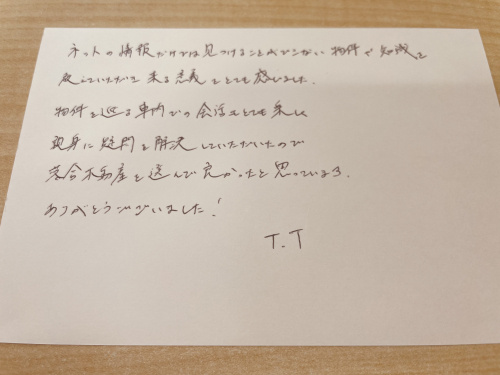 ネットの情報だけでは見つけることができない物件や知識を
戻していただき来る意義をとても感じました。
物件を巡る車内での会話もとても楽しく
親身に疑問を解決していただいたので
落合不動産を選んで良かったと思っている
ありがとうございました!
T.T